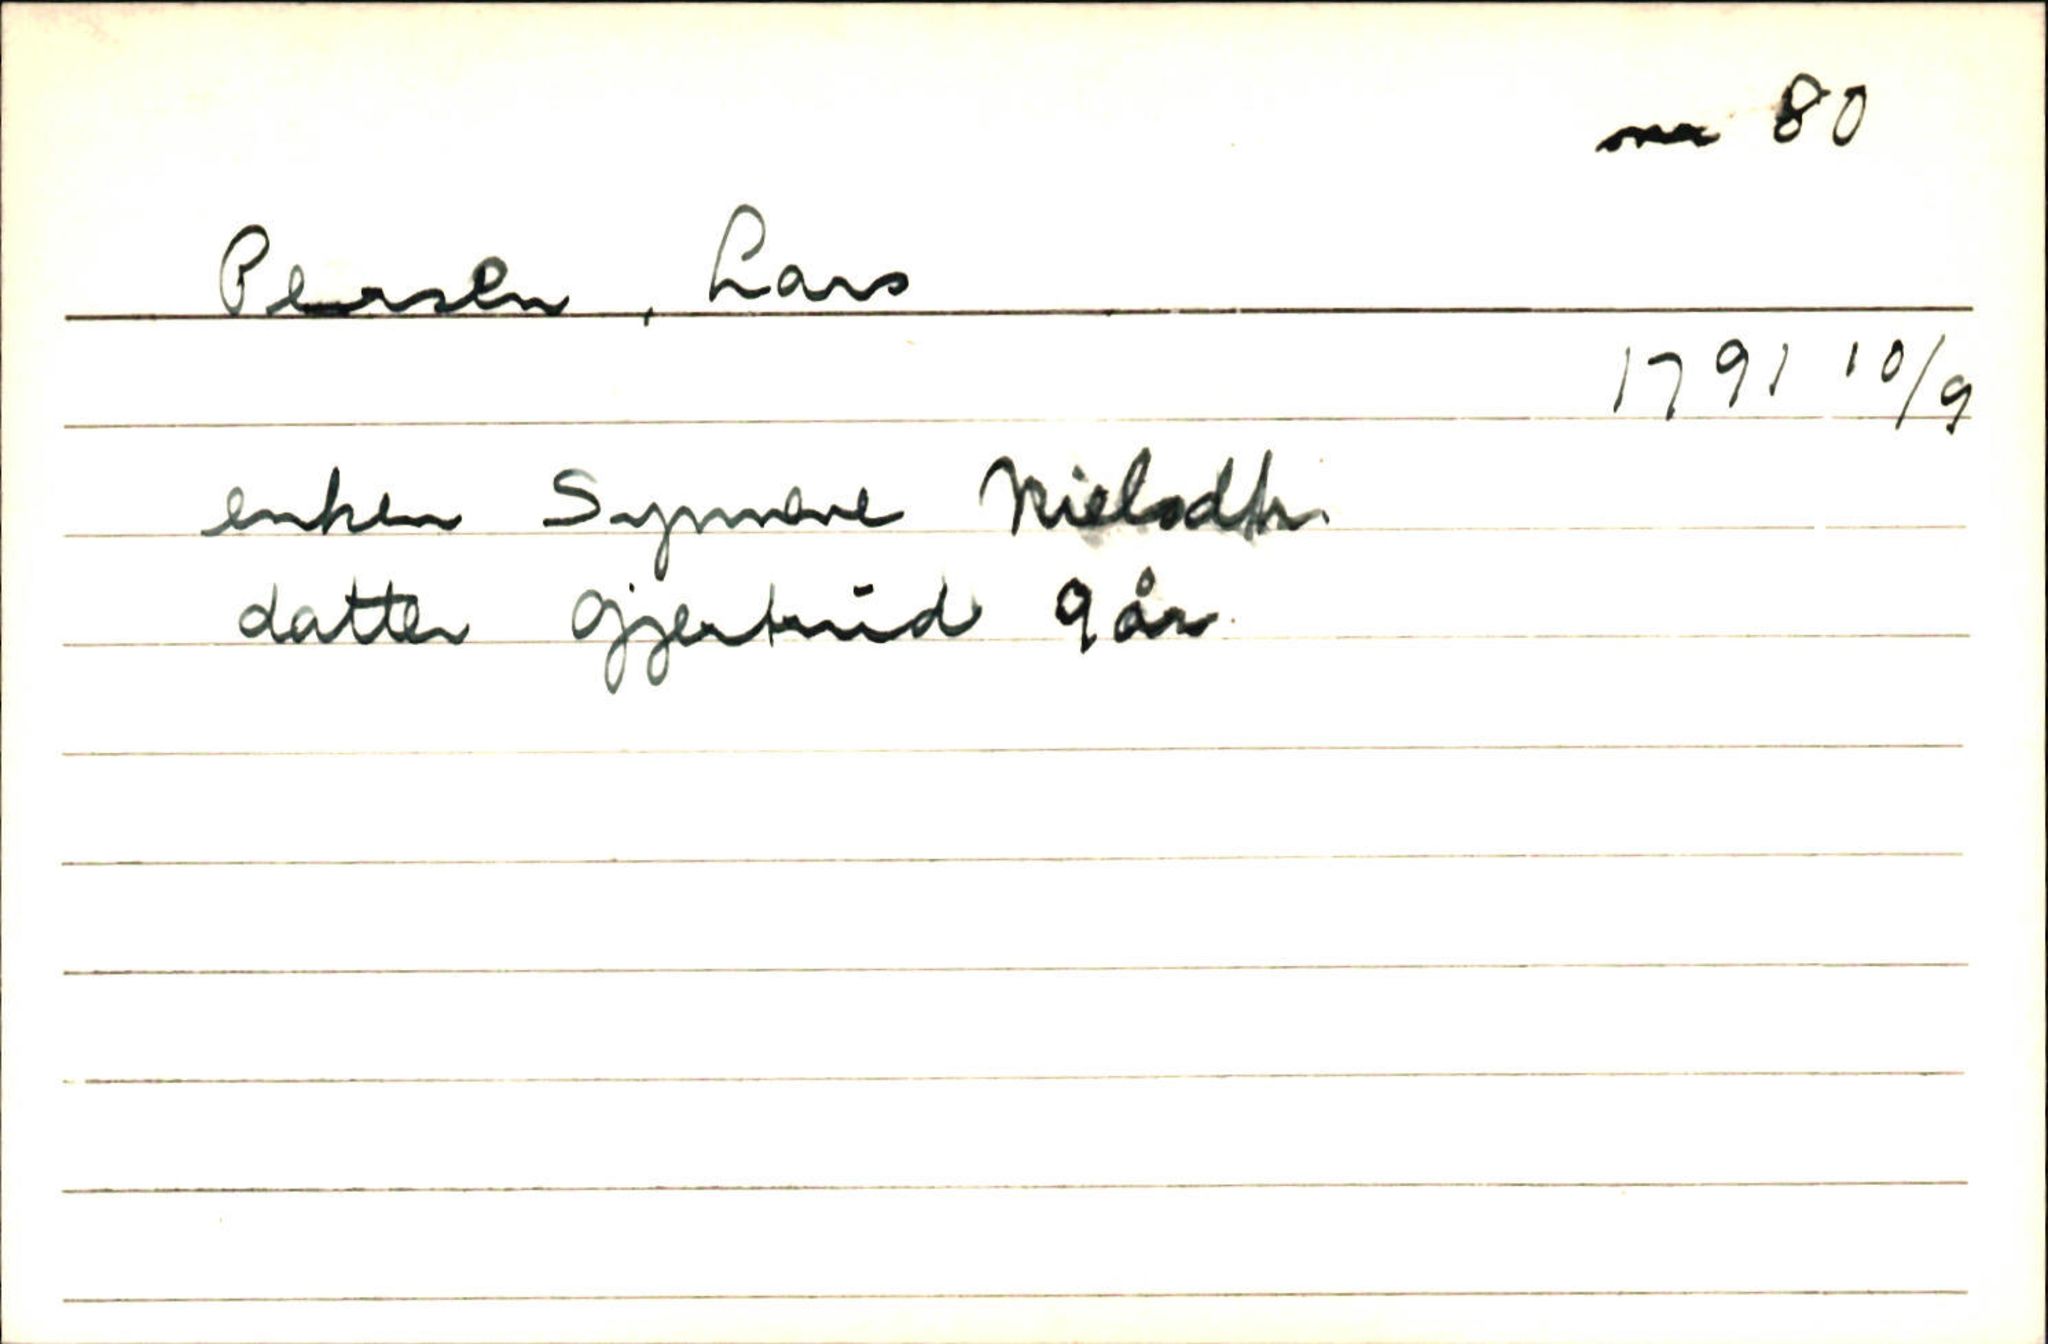 nr 80
Persen, Lars
1791 10/9
enken Synneve Nielsdtr.
datter Gjertrud 9 år